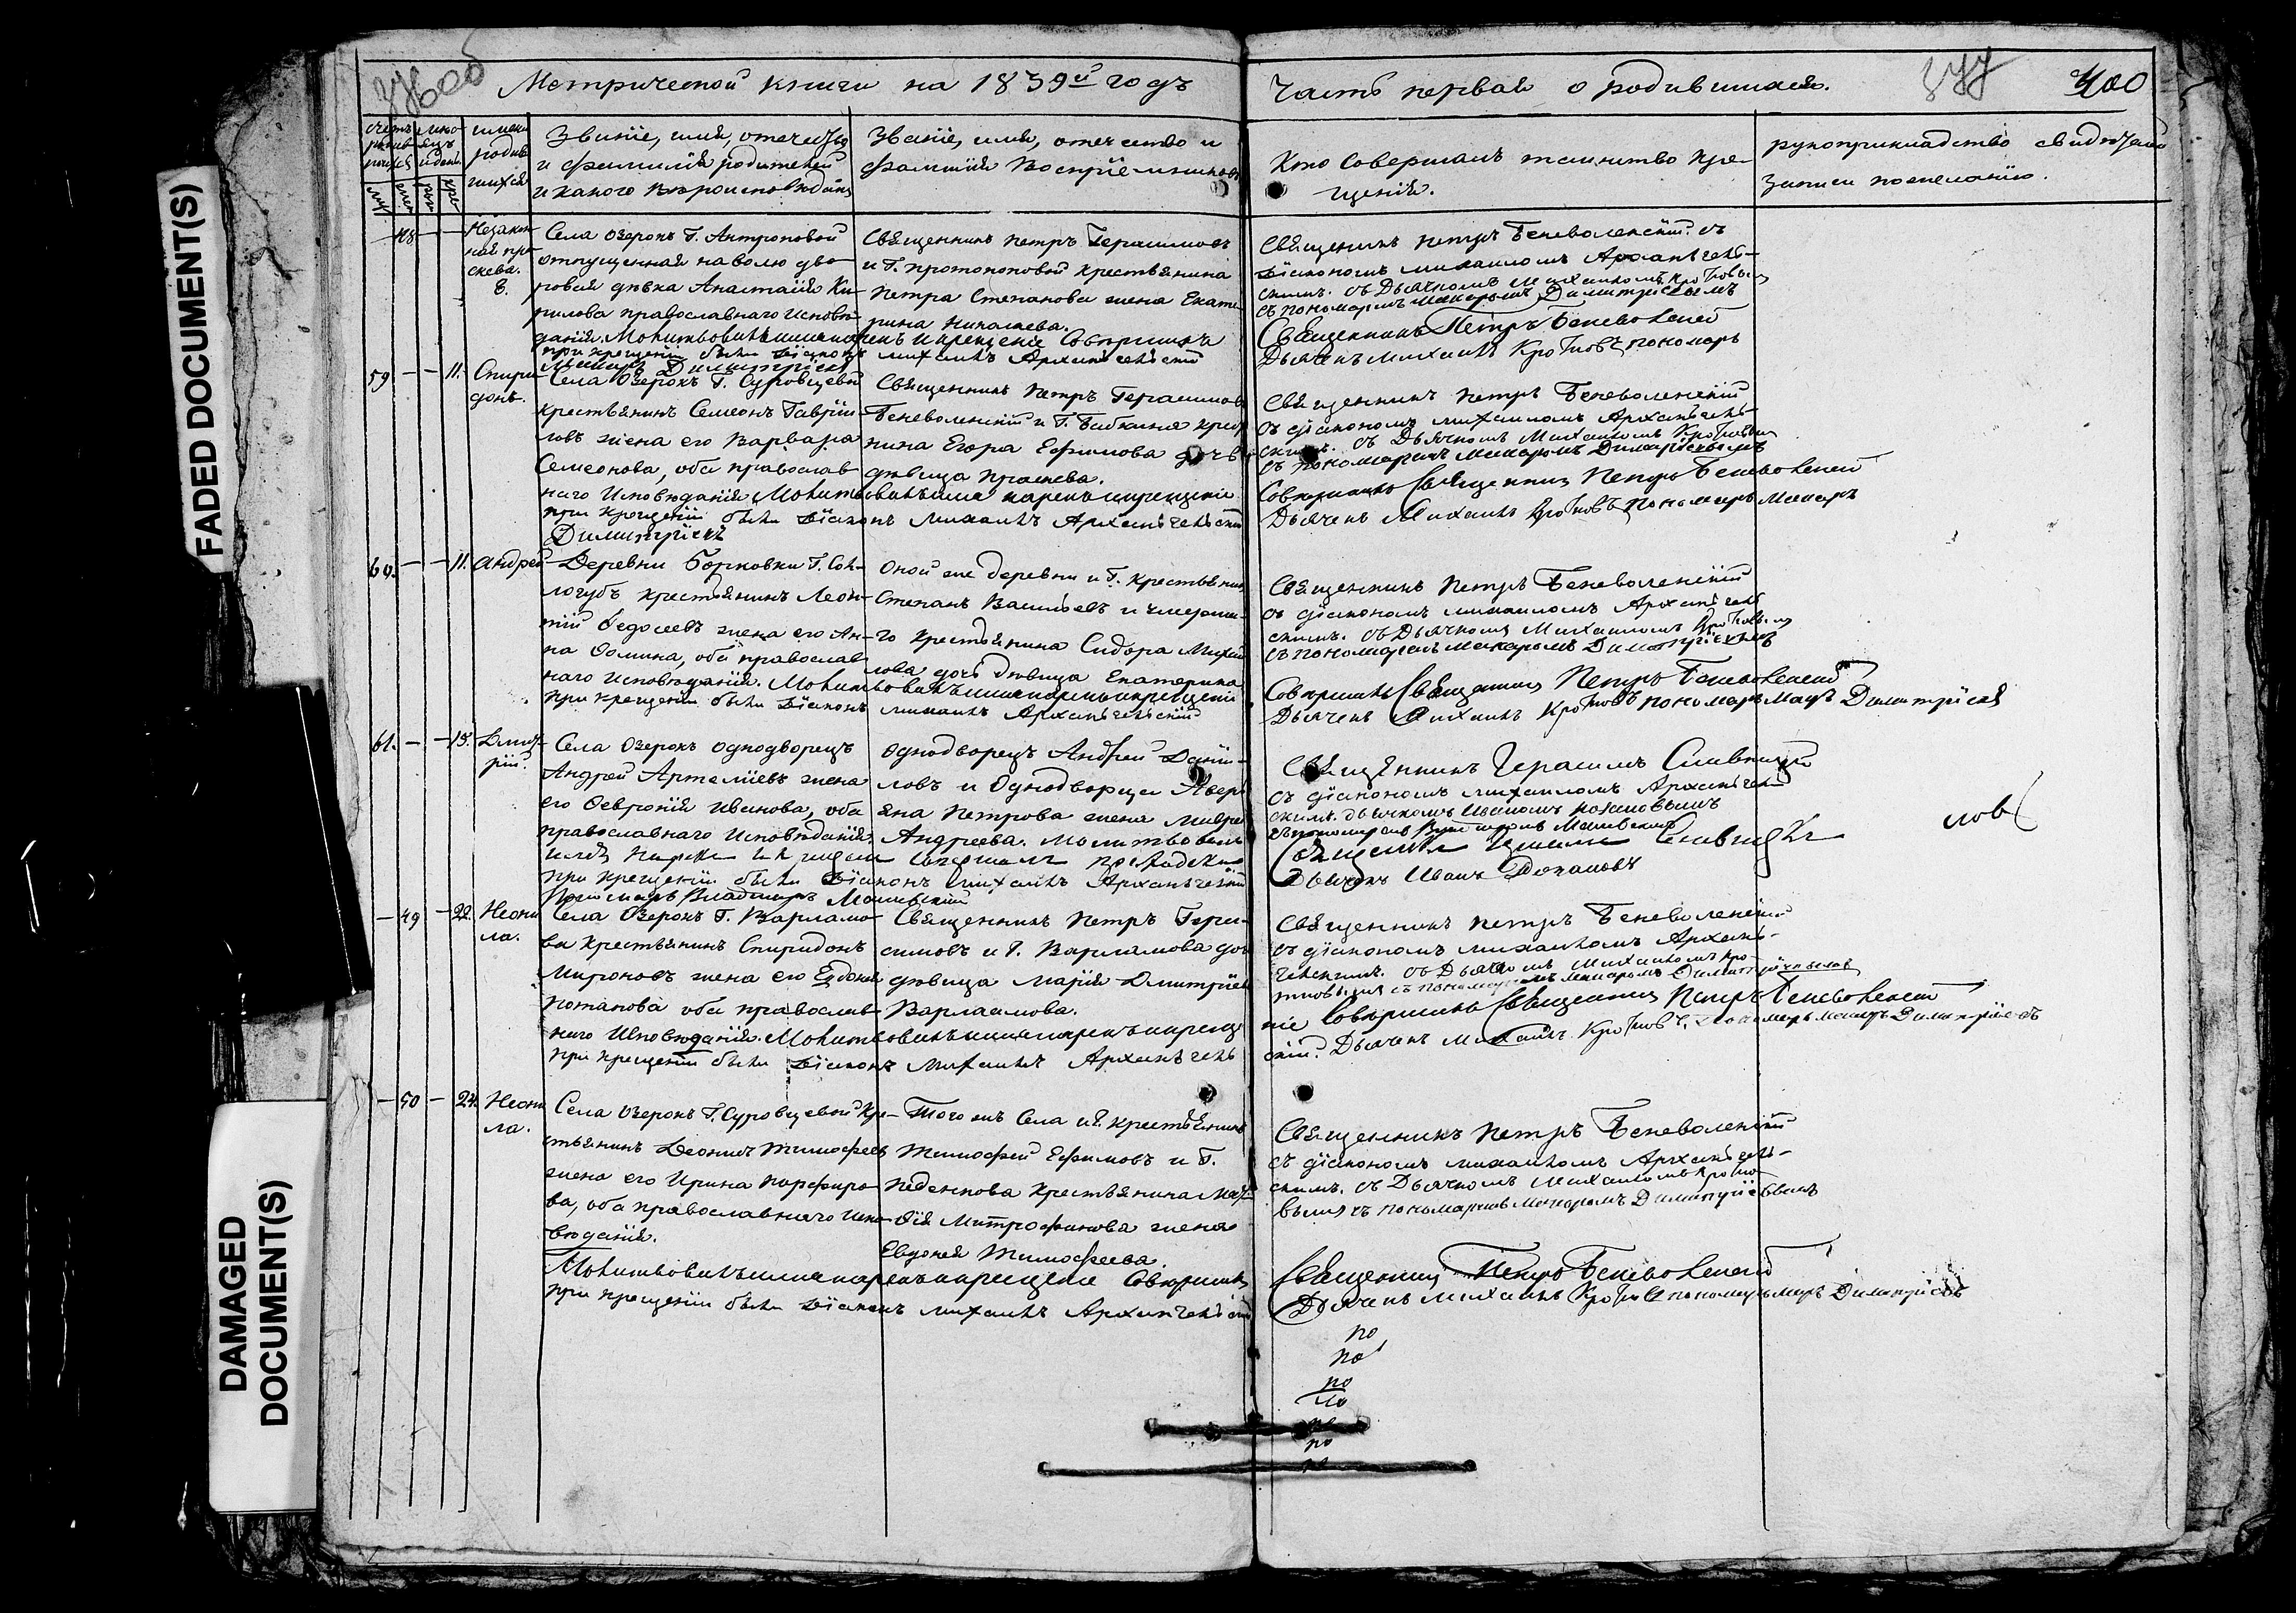 Метрической книги на 1839й годъ
Часть первая о родившихся.
400
имена
родив
шихся
Званіе, имя, отечество
и фамилія родителей
и какого вероисповѣданія
Званіе, имя, отечество и
фамилія Воспріемниковъ
Кто совершалъ таинство кре-
щенія.
рукоприкладство свидѣтелей
записи по желанію.
48
Незакон
ная пра
скева.
8.
Села Озерокъ Г. Антроповой
отпущенная на волю дво-
ровая дѣвка Анастасія Ки-
рилова православнаго исповѣ-
данія. Молитвовалъ имя нарекъ и крещеніе Совершилъ
при крещеніи были Діаконъ Михаилъ Архангельскій
Макаръ Димитріевъ
Священникъ Петръ Герасимовъ
и Г. Протопоповой крестьянина
Петра Степанова жена Екате-
рина Николаева.
Священникъ Петръ Беневоленскій съ
діакономъ михаиломъ Архангель-
скимъ. съ Дьячкомъ Михаиломъ Кротковымъ
съ пономаремъ Макаромъ Димитріевымъ
Священникъ Петръ Беневоленскій
Дьячекъ Михаилъ Кротковъ пономарь
59 — — 11. Спири-
донъ.
Села Озерокъ Г. Суровцевой
крестьянинъ Семеонъ Гавріи-
ловъ жена его Варвара
Семеонова, оба православ
наго Исповѣданія Молитвовалъ имя нарекъ и крещеніе
при крещеніи были Діаконъ Михаилъ Архангельскій
Димитріевъ
Священникъ Петръ Герасимовъ
Беневоленскій и Г. Бабкина крест
нина Егора Ефимова дочь
дѣвица Праскева.
Священникъ Петръ Беневоленскій
съ діакономъ михаиломъ Архангель-
скимъ. съ Дьячкомъ Михаиломъ Кротковымъ
съ пономаремъ Макаромъ Димитріевымъ
Совершилъ Священникъ Петръ Беневоленскій
Дьячекъ Михаилъ Кротковъ пономарь Макаръ
60. — — 11. Андрей
Деревни Борковки Г. Сол-
логубъ крестьянинъ Леон-
тій Ѳедосеевъ жена его Ан-
на Ѳомина, оба православ
наго исповѣданія. Молитвовалъ имя нарекъ и крещеніе
при крещеніи были Діаконъ Михаилъ Архангельскій
Оной же деревни и Г. крестьянинъ
Степанъ Васильевъ и умерша-
го крестьянина Сидора Михай
лова дочь дѣвица Екатерина
Священникъ Петръ Беневоленскій
съ діакономъ михаиломъ Архангель
скимъ. съ Дьячкомъ Михаиломъ Кротковымъ
съ пономаремъ Макаромъ Димитріевымъ
Совершилъ Священникъ Петръ Беневоленскій
Дьячекъ Михаилъ Кротковъ пономарь Макаръ Димитріевъ
61. — — 15. Дмит-
рій.
Села Озерокъ однодворецъ
Андрей Артеміевъ жена
его Ѳевронія Иванова, оба
православнаго Исповѣданія.
при крещеніи были Діаконъ Михаилъ Архангельскій
Пономарь Владимиръ
Однодворецъ Андрей Даніи-
ловъ и Однодворца Авер-
яна Петрова жена Мавра
Андреева. Молитвовалъ
Священникъ Герасимъ
съ діакономъ михаиломъ Архангель
скимъ. дьячкомъ Иваномъ
Дьячекъ Иванъ
нов
— 49 — 22. Неони
ла.
Села Озерокъ Г. Варламо-
ва крестьянинъ Спиридонъ
Мироновъ жена его Евдокія
Потапова оба православ-
наго Исповѣданія. Молитвовалъ имя нарекъ и креще
при крещеніи были Діаконъ Михаилъ Архангель
Священникъ Петръ Гера-
симовъ и Г. Варламова дочь
дѣвица Марія Дмитріева
Варлаамова.
Священникъ Петръ Беневоленскій
съ діакономъ михаиломъ Архан-
гельскимъ. съ Дьячкомъ Михаиломъ Кро-
тковымъ съ пономаремъ Макаромъ Димитріевымъ
ніе Совершилъ Священникъ Петръ Беневоленскій
скій. Дьячекъ Михаилъ Кротковъ. Пономарь Макаръ Димитріевъ
— 50 — 24. Неони
ла.
Села Озерокъ Г. Суровцевой Кре-
стьянинъ Леонтій Тимофеевъ
жена его Ирина Порфиро-
ва, оба православнаго Испо-
вѣданія.
Молитвовалъ имя нарекъ и крещеніе Совершилъ
при крещеніи были Діаконъ Михаилъ Архангельскій
Того жъ Села и Г. крестьянинъ
Тимофей Ефимовъ и Г.
крестьянина Мат-
ѳія Митрофанова жена
Евдокея Тимофеева.
Священникъ Петръ Беневоленскій
съ діакономъ михаиломъ Архангель-
скимъ. съ Дьячкомъ Михаиломъ Кротко-
вымъ съ пономаремъ Макаромъ Димитріевымъ
Священникъ Петръ Беневоленскій
Дьячекъ Михаилъ Кротковъ пономарь Макаръ Димитріевъ
по
по
по
по
по
FADED DOCUMENT(S)
DAMAGED
DOCUMENT(S)